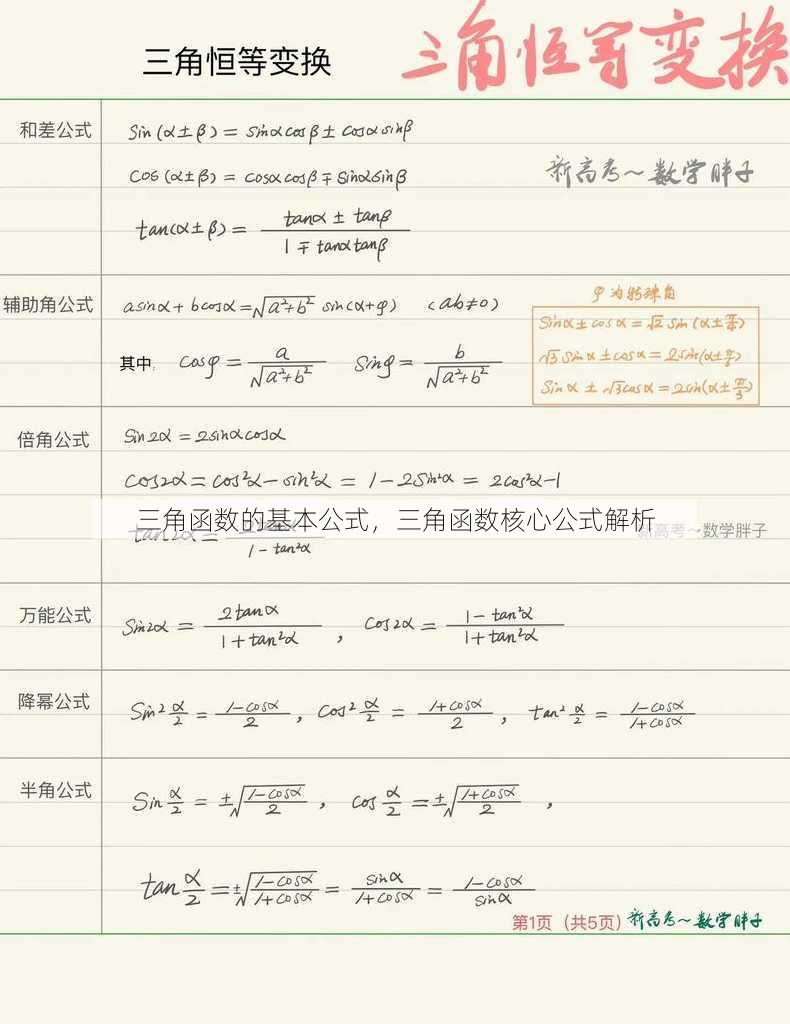 三角恒等变换
三角恒等变换
和差公式
sin(α±β) = sinαcosβ ± cosαsinβ
cos(α±β) = cosαcosβ ∓ sinαsinβ
新高考~数学胖子
tan(α±β) = (tanα ± tanβ)/(1 ∓ tanαtanβ)
辅助角公式
asinα + bcosα = √(a²+b²) sin(α+φ) (ab≠0)
其中: cosφ = a/√(a²+b²) sinφ = b/√(a²+b²)
φ为特殊角
sinα ± cosα = √2 sin(α±π/4)
√3 sinα ± cosα = 2sin(α±π/6)
sinα ± √3cosα = 2sin(α±π/3)
倍角公式
sin2α = 2sinαcosα
cos2α = cos²α - sin²α = 1 - 2sin²α = 2cos²α - 1
三角函数的基本公式，三角函数核心公式解析
新高考~数学胖子
tan2α = /(1 - tan²α)
万能公式
sin2α = 2tanα/(1+tan²α) , cos2α = (1-tan²α)/(1+tan²α)
降幂公式
sin²α/2 = (1-cosα)/2 , cos²α/2 = (1+cosα)/2 , tan²α/2 = (1-cosα)/(1+cosα)
半角公式
sinα/2 = ±√((1-cosα)/2) , cosα/2 = ±√((1+cosα)/2) ,
tanα/2 = ±√((1-cosα)/(1+cosα)) = sinα/(1+cosα) = (1-cosα)/sinα
第1页（共5页）新高考~数学胖子